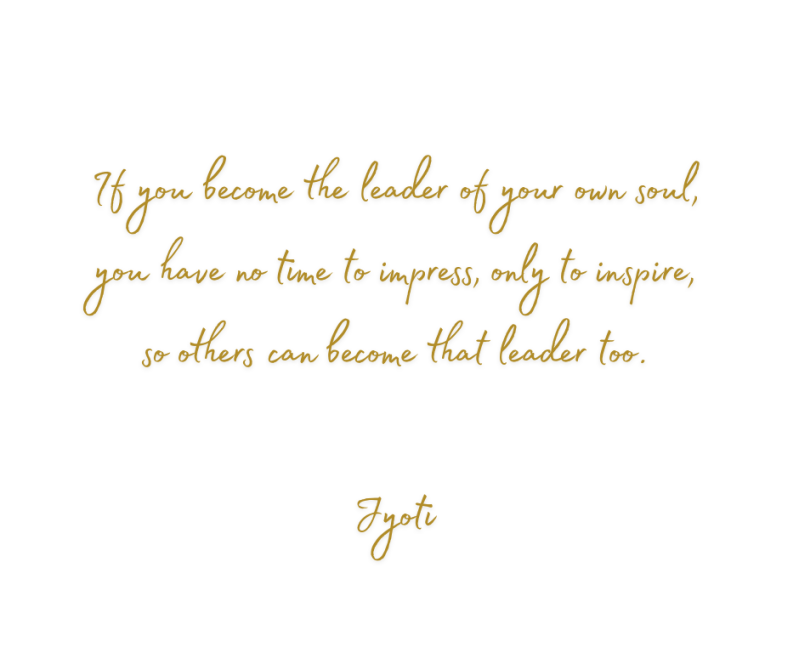 If you become the leader of your own soul,
you have no time to impress, only to inspire,
so others can become that leader too.
Jyoti